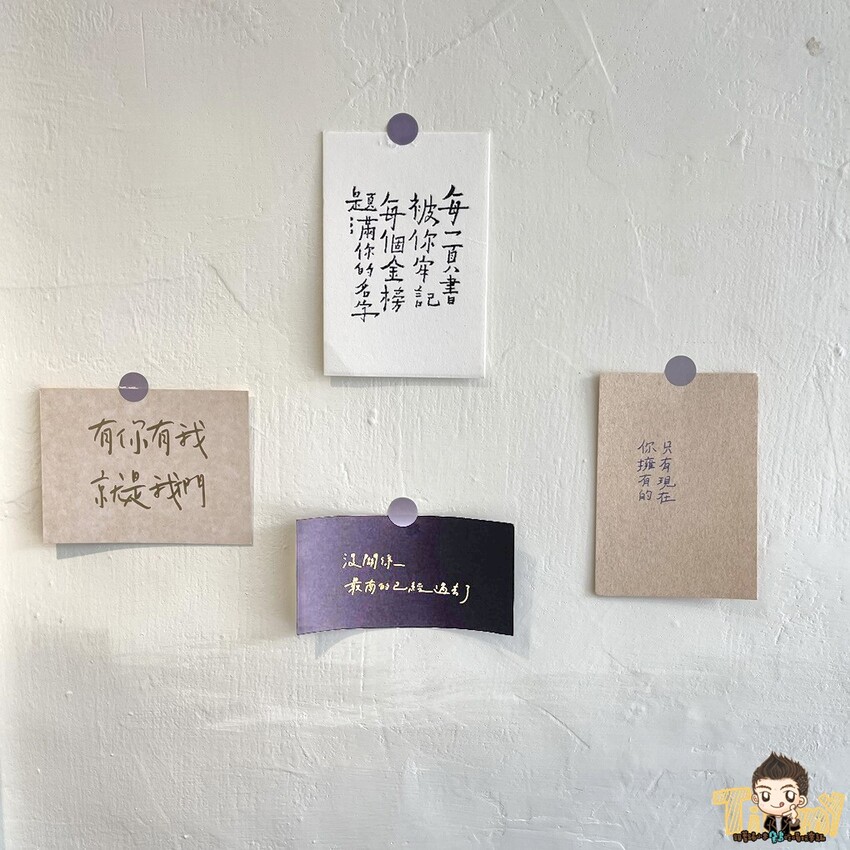 每一頁書
被你牢記
每個金榜
題滿你的名字
有你有我
就是我們
只有現在
你擁有的
沒關係
最的已經過去了